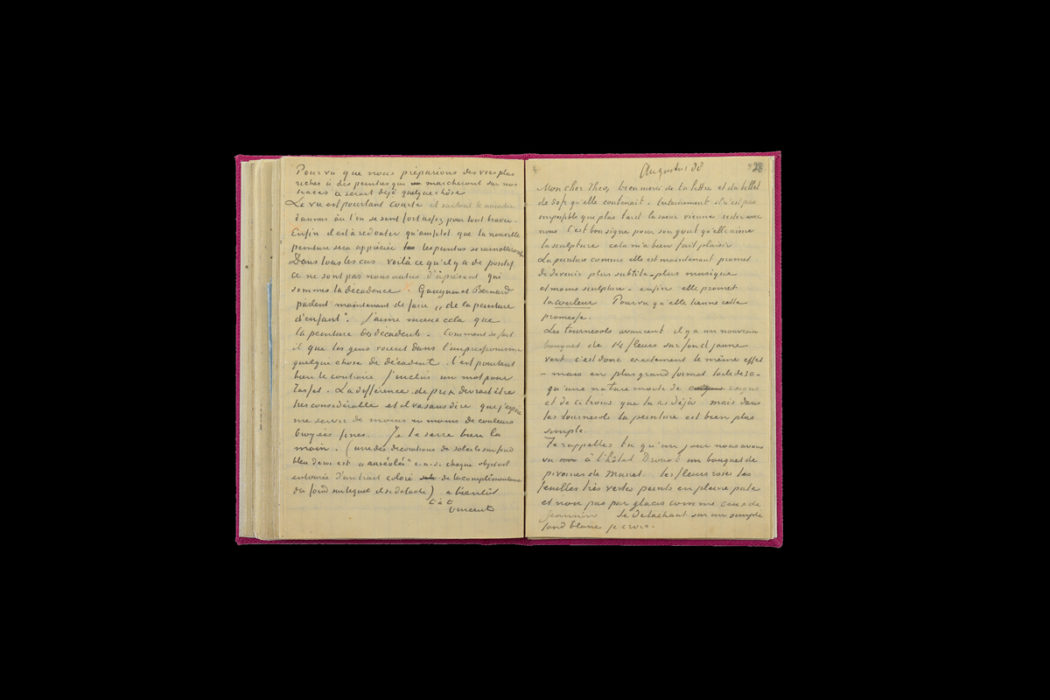 Pourvu que nous préparions des vies plus
riches à des peintres qui marcheront sur nos
traces ce serait déjà quelque chose
La vie est pourtant courte et surtout le nombre
d'années où l'on se sent fort assez pour tout braver.
Enfin il est à redouter qu'aussitôt que la nouvelle
peinture sera appréciée les peintres se ramolliront
Dans tous les cas voilà ce qu'il y a de positif
ce ne sont pas nous autres d'à présent qui
sommes la décadence. Gauguin et Bernard
parlent maintenant de faire „de la peinture
d'enfant". J'aime mieux cela que
la peinture des décadents. Comment se fait
il que les gens voient dans l'impressionisme
quelque chose de décadent. C'est pourtant
bien le contraire J'inclus un mot pour
Tasset. La différence de prix devrait être
très considérable et il va sans dire que j'espère
me servir de moins en moins de couleurs
broyées fines. Je te serre bien la
main. (une des décorations de soleils sur fond
bleu de roi est „auréolée" c.à.d. chaque objet est
entourée d'un trait coloré de la complémentaire
du fond sur lequel il se détache) à bientôt
t. à t.
Vincent
28
Augustus 88
Mon cher Theo, bien merci de ta lettre et du billet
de 50 f. qu'elle contenait. Certainement il n'est pas
impossible que plus tard la soeur vienne rester avec
nous C'est bon signe pour son gout qu'elle aime
la sculpture cela m'a bien fait plaisir
La peinture comme elle est maintenant promet
de devenir plus subtile – plus musique
et moins sculpture – enfin elle promet
la couleur Pourvu qu'elle tienne cette
promesse.
Les tournesols avancent il y a un nouveau
bouquet de 14 fleurs sur fond jaune
vert c'est donc exactement le même effet
– mais en plus grand format toile de 30 –
qu'une nature morte de coings
et de citrons que tu as déjà mais dans
les tournesols la peinture est bien plus
simple.
Te rappelles tu qu'un jour nous avons
vu à l'hôtel Drouot un bouquet de
pivoines de Manet. les fleurs roses les
feuilles très vertes peints en pleine pâte
et non pas par glacis comme ceux de
Jeannin Se detachant sur un simple
fond blanc je crois.